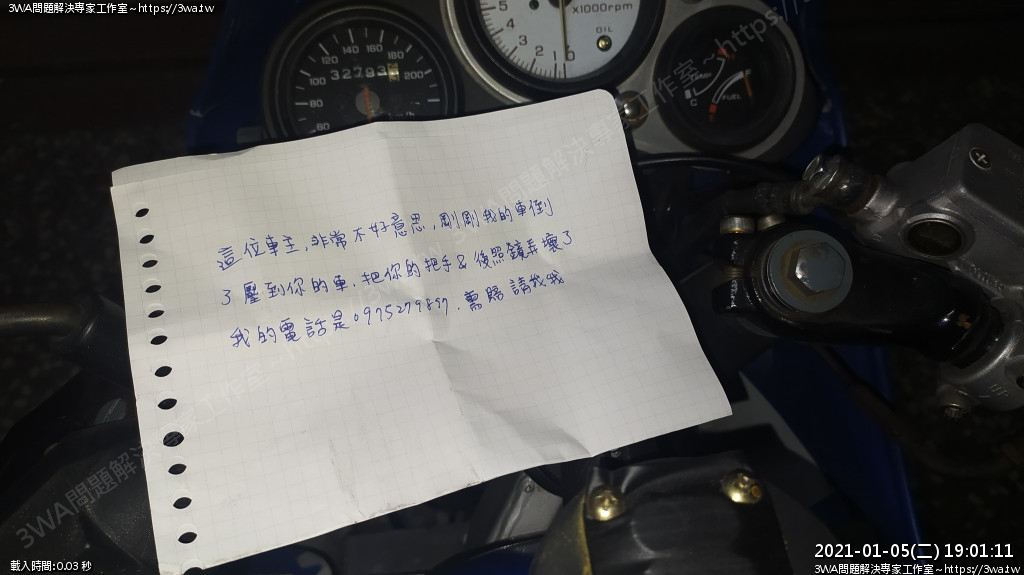 3WA問題解決專家工作室~https://3wa.tw
x1000rpm
OIL
5
4
3
2
1
0
120
140
160
180
100
32793
200
80
60
km/h
TEMP
C
FUEL
這位車主,非常不好意思,剛剛我的車倒
了壓到你的車.把你的把手&後照鏡弄壞了
我的電話是0975279897.需賠請找我
3WA問題解決專家工作室~https://
3WA問題解決專家工作室~h
2021-01-05(二) 19:01:11
載入時間:0.03 秒
3WA問題解決專家工作室~https://3wa.tw